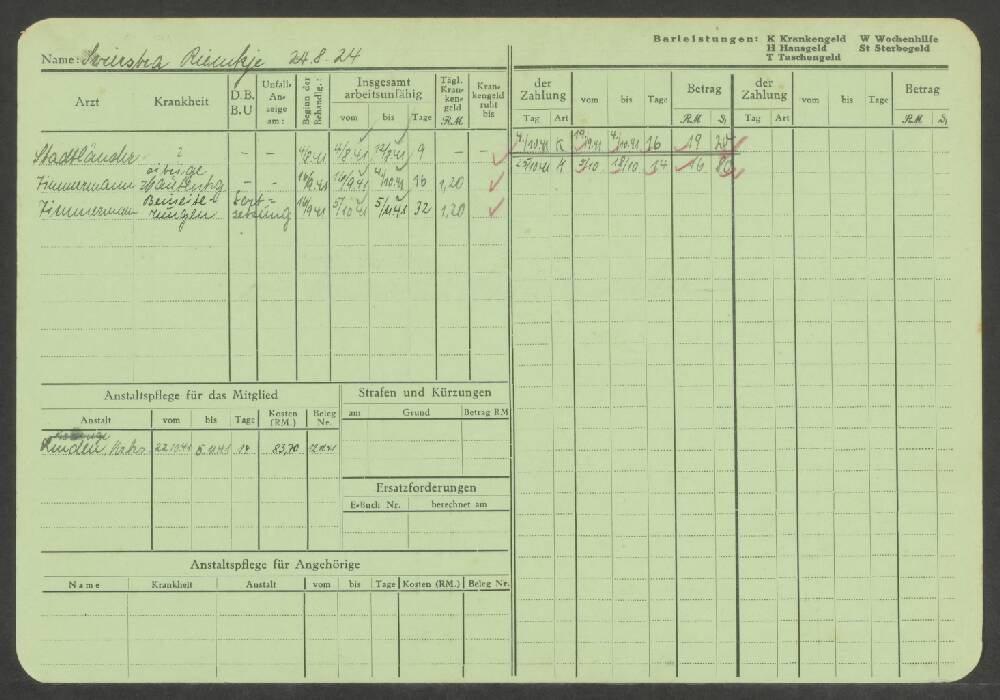 Barleistungen: K Krankengeld W Wochenhilfe
H Hausgeld St Sterbegeld
T Taschengeld
Name: Rienkje 24.8.24
Arzt Krankheit D.B. B.U Unfall-An-zeige am: Beginn der Behandlg.: Insgesamt arbeitsunfähig vom bis Tage Tägl. Kran-ken-geld RM Kran-kengeld ruht bis
Stadtländer ? - - 4/8.41 4/8.41 12/8.41 9 - -
Zimmermann - - 16/9.41 16/9.41 4/10.41 1,20
Zimmermann Fort=setzung 16/9.41 5/10.41 5/11.41 32 1,20
der Zahlung vom bis Tage Betrag der Zahlung vom bis Tage Betrag
Tag Art RM Tag Art RM
/10.41 K 19/9.41 4./10.41 16 19 20
25/10.41 K 5/10 18/10 14 16 80
Anstaltspflege für das Mitglied
Anstalt vom bis Tage Kosten (RM.) Beleg Nr.
Linden 22.10.41 5.11.41 14 83,70
Strafen und Kürzungen
am Grund Betrag RM
Ersatzforderungen
E=Buch Nr. berechnet am
Anstaltspflege für Angehörige
Name Krankheit Anstalt vom bis Tage Kosten (RM.) Beleg Nr.